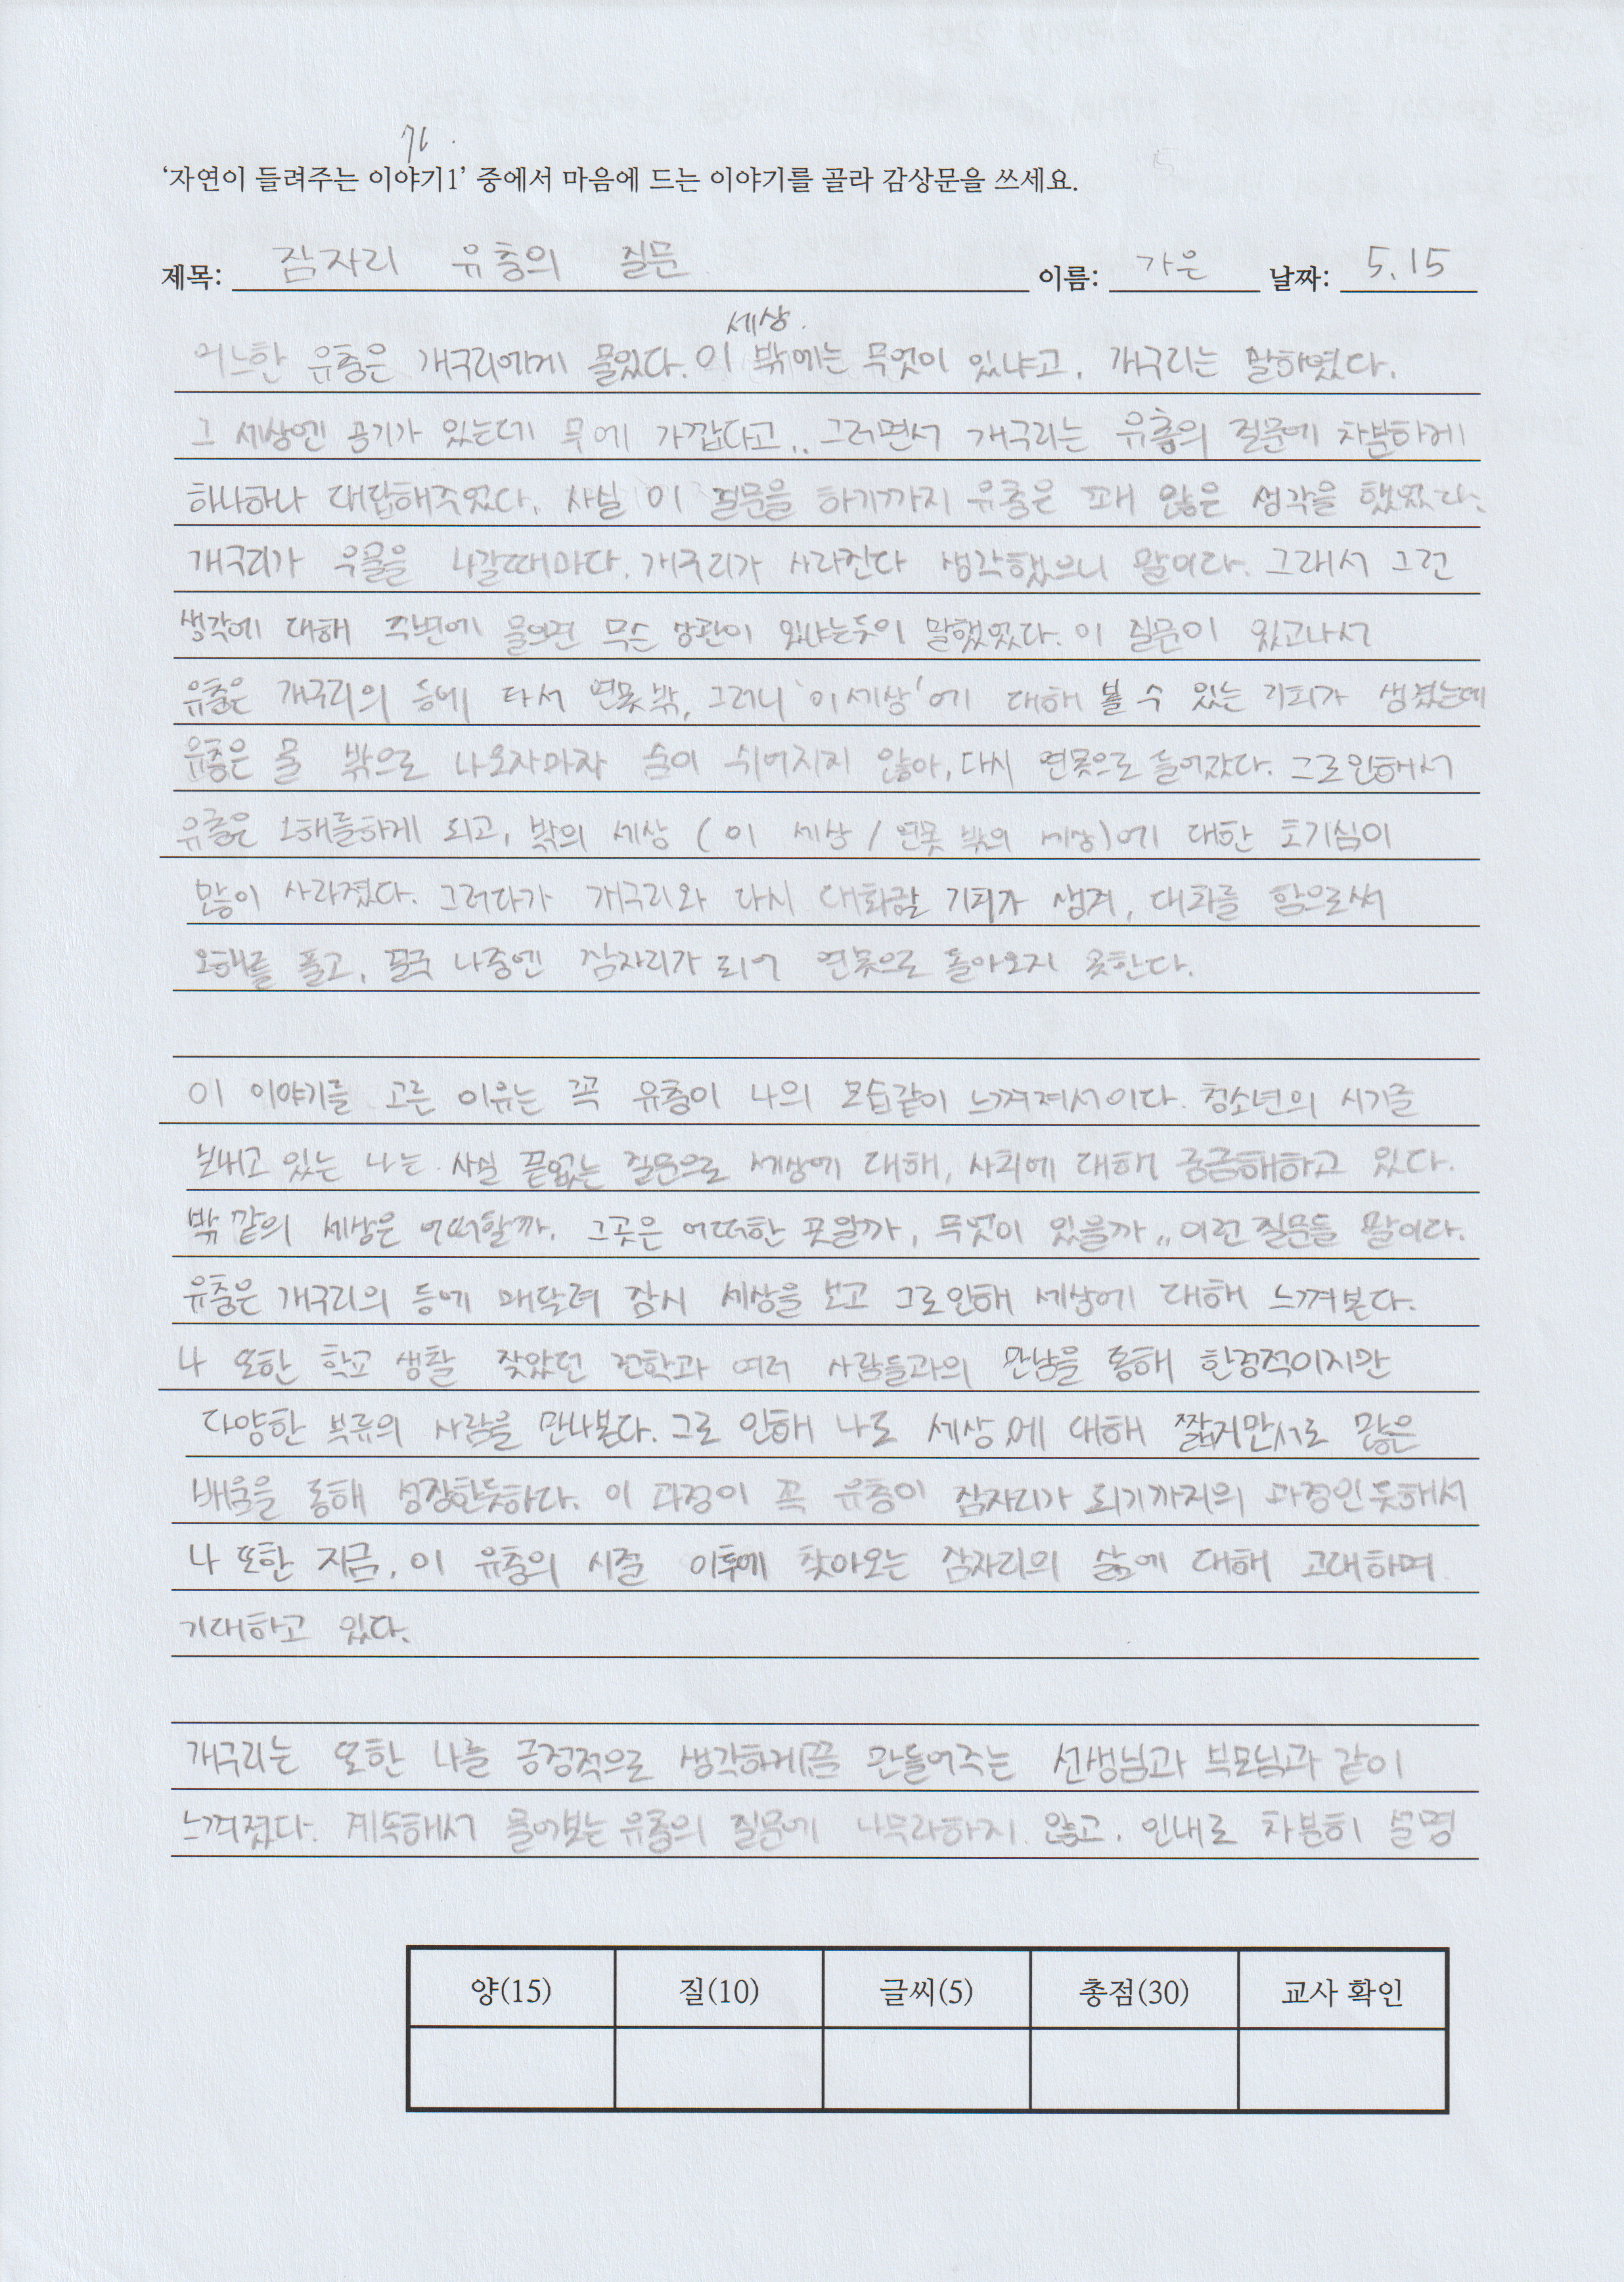 가.
‘자연이 들려주는 이야기1’ 중에서 마음에 드는 이야기를 골라 감상문을 쓰세요.
제목: 잠자리 유충의 질문 이름: 가은 날짜: 5. 15
세상.
어느한 유충은 개구리에게 물었다. 이 밖에는 무엇이 있냐고. 개구리는 말하였다.
그 세상엔 공기가 있는데 무에 가깝다고.. 그러면서 개구리는 유충의 질문에 차분하게
하나하나 대답해주었다. 사실 이 질문을 하기까지 유충은 꽤 않은 생각을 했었다.
개구리가 우물을 나갈때마다. 개구리가 사라진다 생각했으니 말이다. 그래서 그런
생각에 대해 주변에 물으면 무슨 상관이 있냐는듯이 말했었다. 이 질문이 있고나서
유충은 개구리의 등에 타서 연못 밖, 그러니 '이 세상'에 대해 볼 수 있는 기회가 생겼는데
유충은 물 밖으로 나오자마자 숨이 쉬어지지 않아, 다시 연못으로 들어갔다. 그로인해서
유충은 오해를하게 되고, 밖의 세상 (이 세상 / 연못 밖의 세상)에 대한 호기심이
많이 사라졌다. 그러다가 개구리와 다시 대화할 기회가 생겨, 대화를 함으로써
오해를 풀고, 결국 나중엔 잠자리가 되어 연못으로 돌아오지 못한다.
이 이야기를 고른 이유는 꼭 유충이 나의 모습같이 느껴져서이다. 청소년의 시기를
보내고 있는 나는 사실 끝없는 질문으로 세상에 대해, 사회에 대해 궁금해하고 있다.
밖 같의 세상은 어떠할까. 그곳은 어떠한 곳일까, 무엇이 있을까,, 이런 질문들 말이다.
유충은 개구리의 등에 매달려 잠시 세상을 보고 그로인해 세상에 대해 느껴본다.
나 또한 학교 생활 잦았던 전학과 여러 사람들과의 만남을 통해 한정적이지만
다양한 부류의 사람을 만나본다. 그로 인해 나도 세상에 대해 짧지만서도 많은
배움을 통해 성장한듯하다. 이 과정이 꼭 유충이 잠자리가 되기까지의 과정인듯해서
나 또한 지금, 이 유충의 시절 이후에 찾아오는 잠자리의 삶에 대해 고대하며
기대하고 있다.
개구리는 또한 나를 긍정적으로 생각하게끔 만들어주는 선생님과 부모님과 같이
느껴졌다. 계속해서 물어보는 유충의 질문에 나무라하지 않고. 인내로 차분히 설명
양(15) 질(10) 글씨(5) 총점(30) 교사 확인